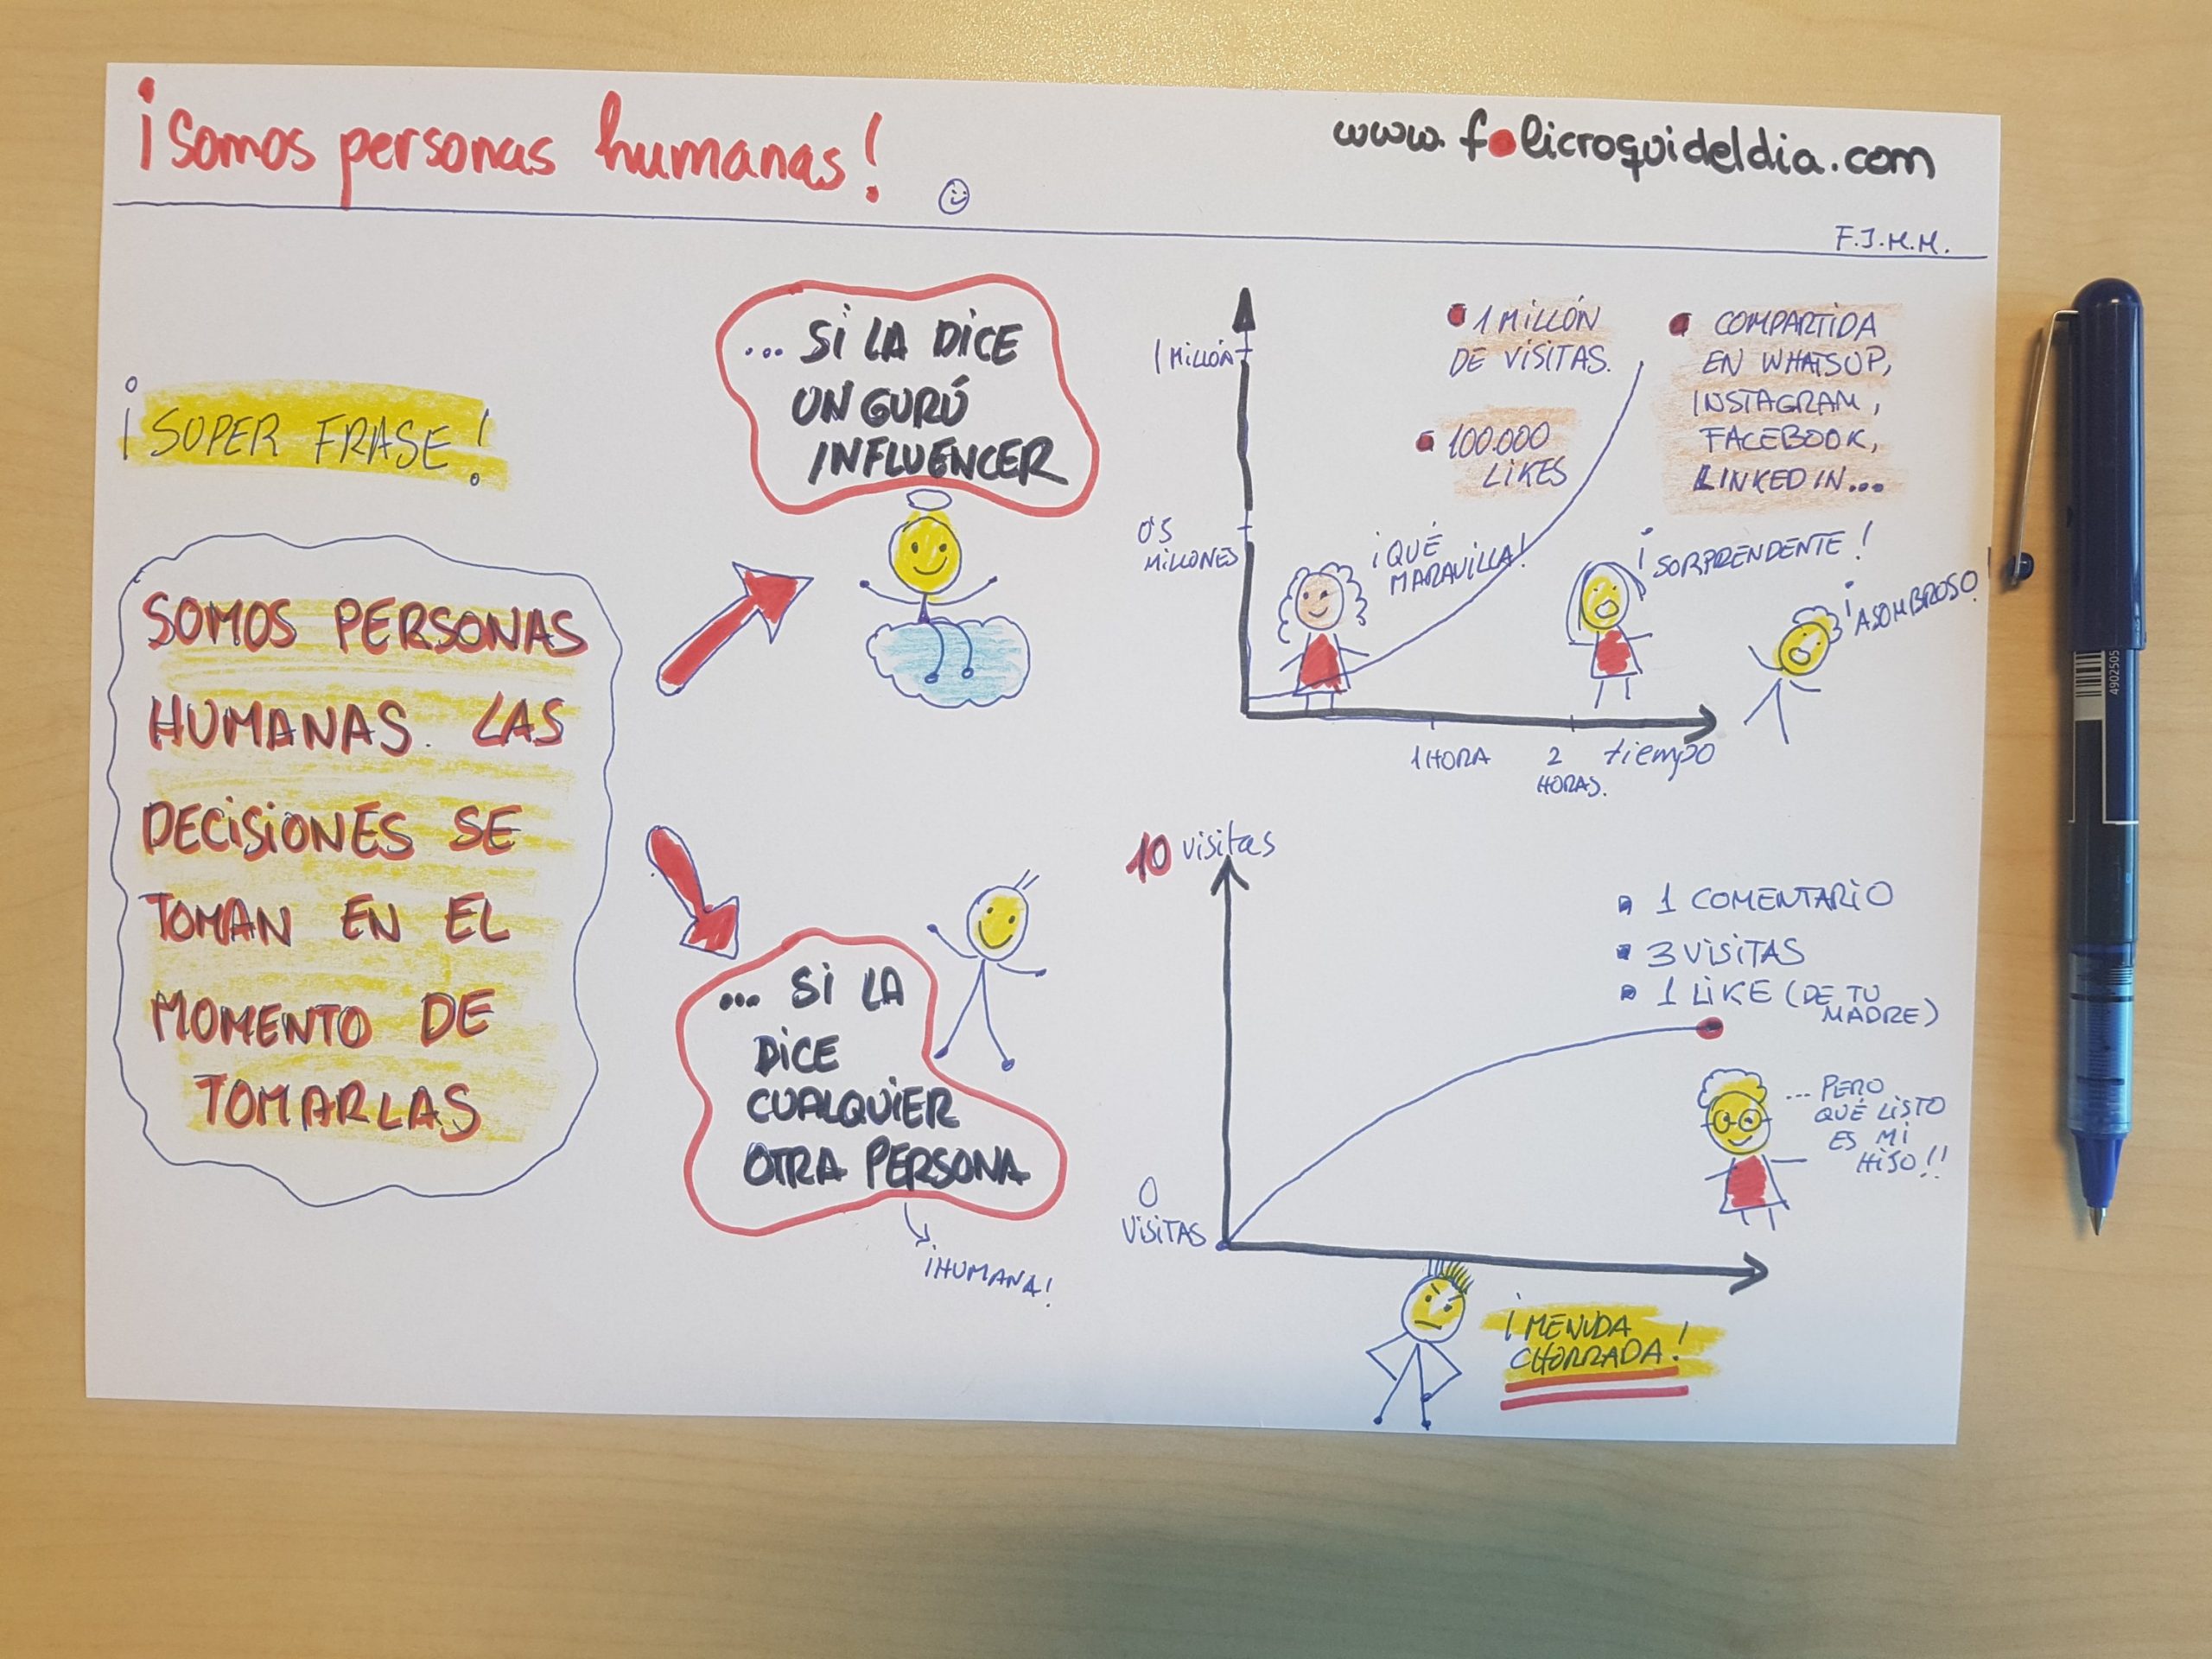 ¡Somos personas humanas!
www.folicroquideldia.com
F.J.M.M.
¡SUPER FRASE!
SOMOS PERSONAS
HUMANAS. LAS
DECISIONES SE
TOMAN EN EL
MOMENTO DE
TOMARLAS
... SI LA DICE
UN GURÚ
INFLUENCER
1 MILLÓN
0'5
MILLONES
1 MILLÓN
DE VISITAS.
100.000
LIKES
COMPARTIDA
EN WHATSUP,
INSTAGRAM,
FACEBOOK,
LINKEDIN...
¡QUÉ
MARAVILLA!
¡SORPRENDENTE!
¡ASOMBROSO
1 HORA
2
HORAS.
tiempo
... SI LA
DICE
CUALQUIER
OTRA PERSONA
¡HUMANA!
10 visitas
0
VISITAS
1 COMENTARIO
3 VISITAS
1 LIKE (DE TU
MADRE)
... PERO
QUÉ LISTO
ES MI
HIJO!!
¡MENUDA
CHORRADA!
4902505